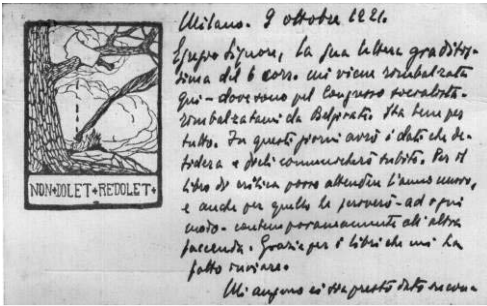 Milano. 9 ottobre 1921.
Egregio Signore, la sua lettera graditis-
sima del 6 corr. mi viene rimbalzata
qui - dove sono pel Congresso socialista -
rimbalzatami da Belgirate. Sta bene per
tutto. In questi giorni avrò i dati che de-
sidera e glieli comunicherò subito. Per il
libro di critica posso attendere l'anno nuovo,
e anche per quello le scriverò - ad ogni
modo - contemporaneamente all'altra
faccenda. Grazie per i libri che mi ha
fatto inviare.
Mi auguro ci sia presto dato
NON DOLET REDOLET